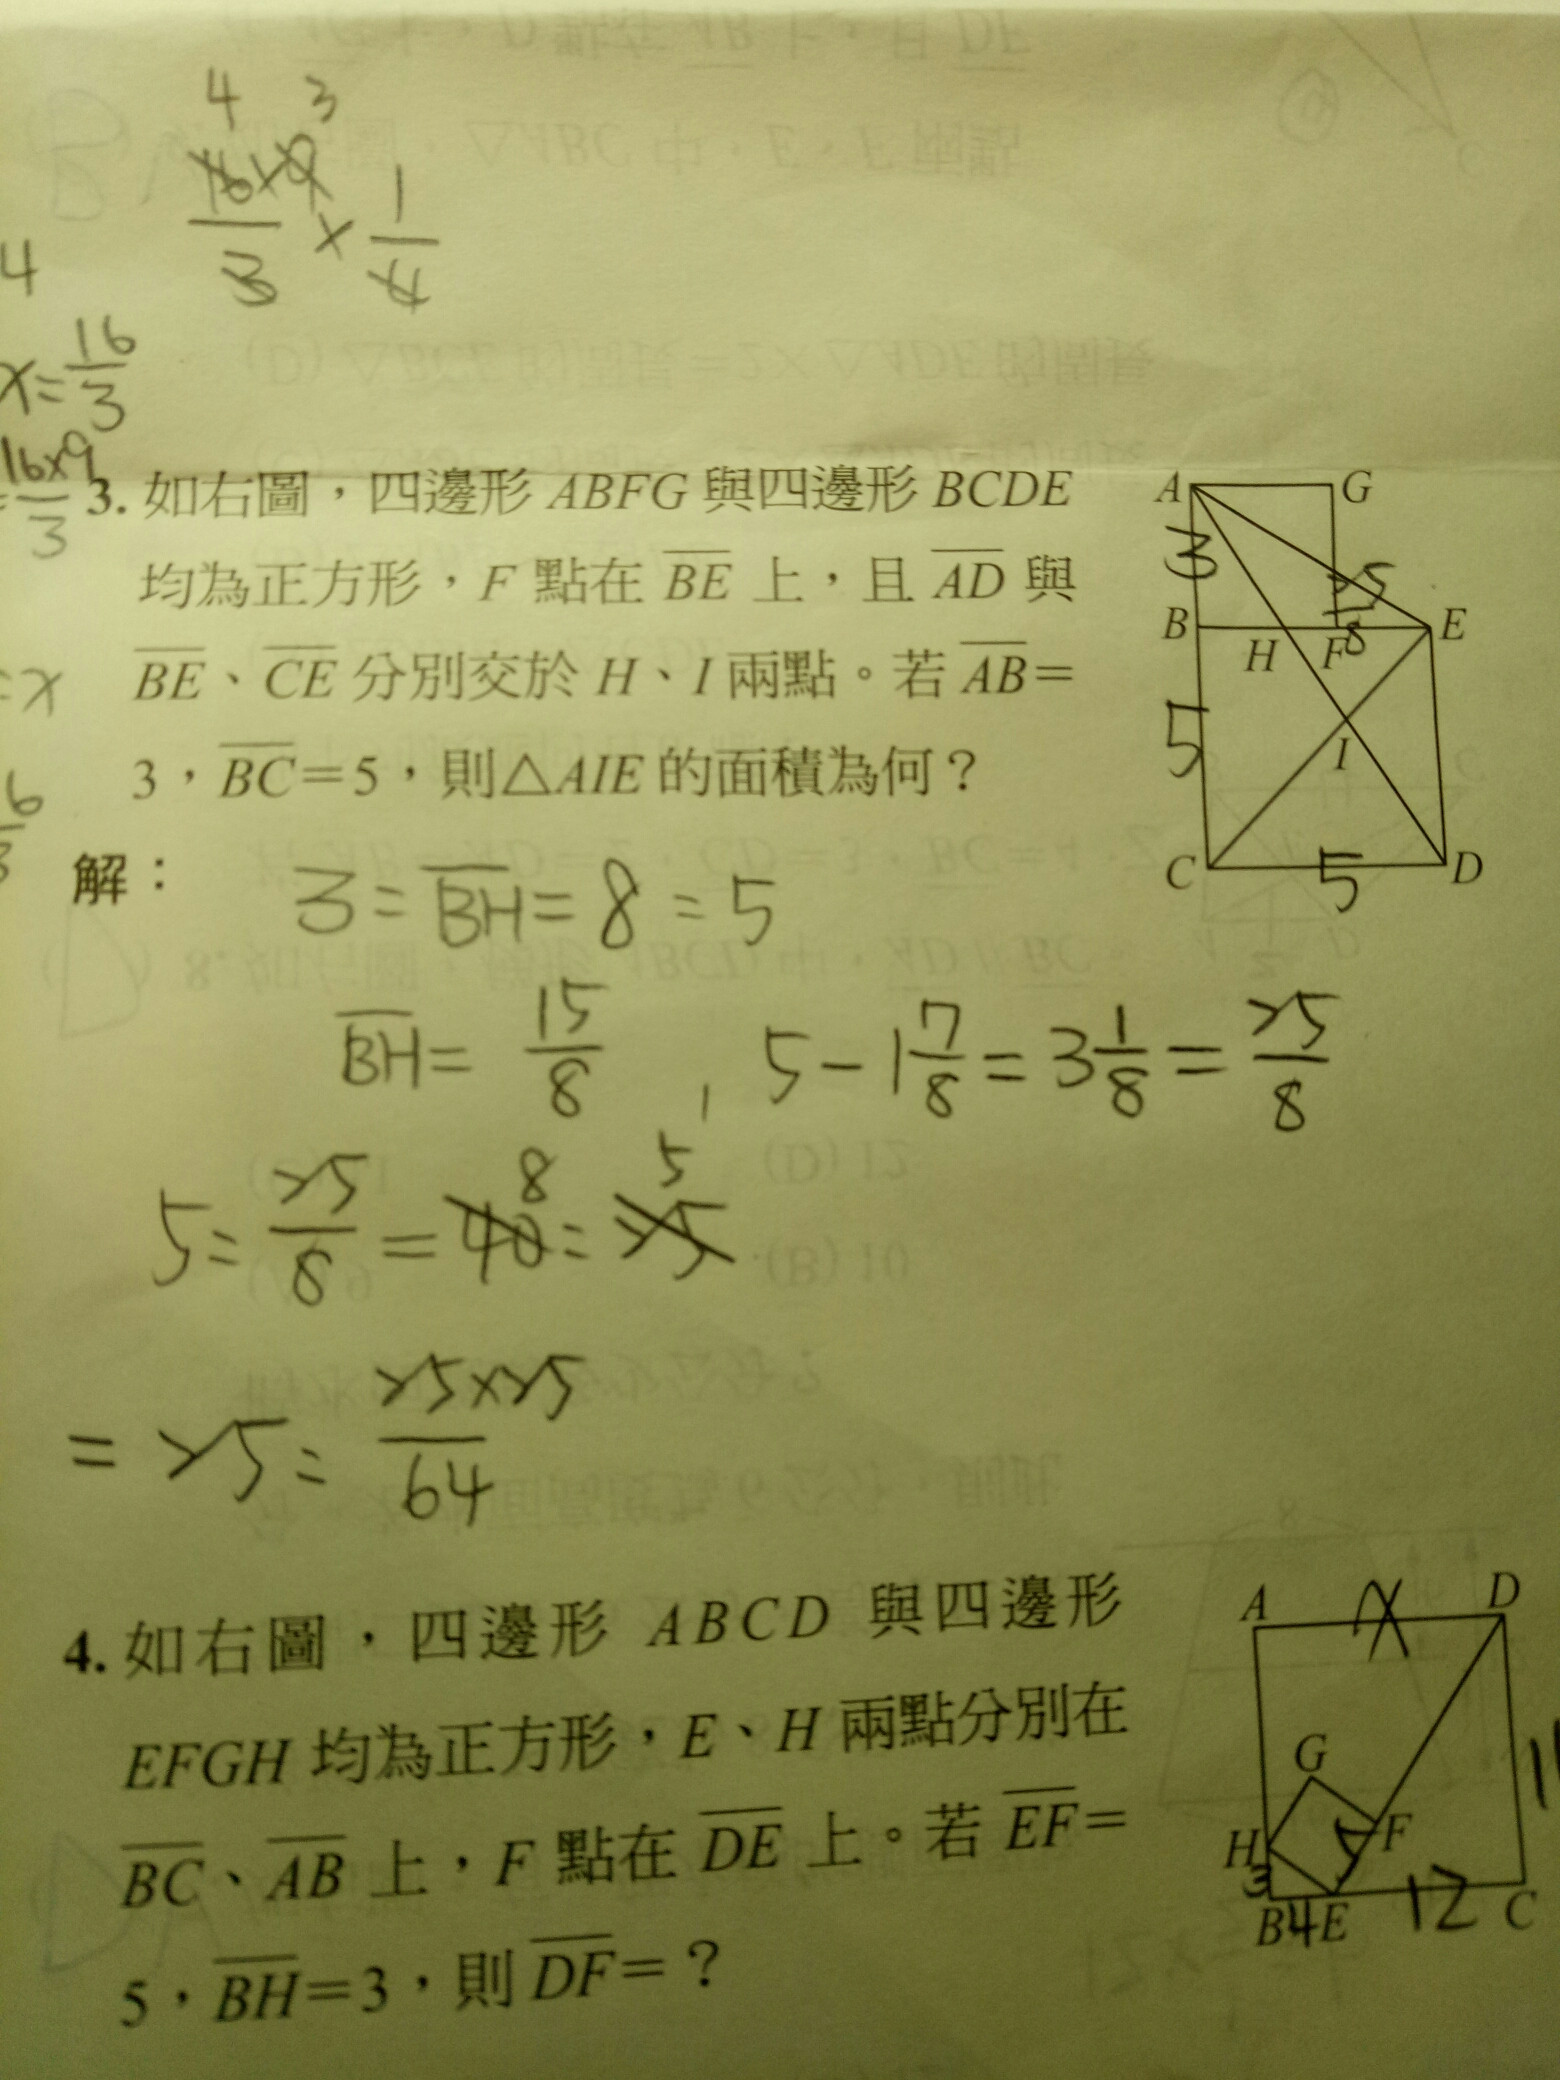 4 3
16×9
3 × 1
4
4
x=16
3
16×9
= 3
=x
6
3
3. 如右圖，四邊形 ABFG 與四邊形 BCDE
均為正方形，F 點在 BE 上，且 AD 與
BE、CE 分別交於 H、I 兩點。若 AB=
3，BC=5，則△AIE 的面積為何？
A G
3
25
8
B H F E
5
I
C 5 D
解：
3=BH=8=5
BH= 15/8 , 5-1 7/8 = 3 1/8 = 25/8
8 5
5= 25/8 = 40 = 25
= 25= 25×25/64
4. 如右圖，四邊形 ABCD 與四邊形
EFGH 均為正方形，E、H 兩點分別在
BC、AB 上，F 點在 DE 上。若 EF=
5，BH=3，則 DF=？
A D
G
H F
3 5
B 4 E 12 C